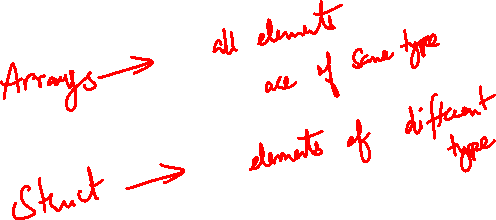 Arrays → all elements
are of same type
Struct → elements of different
type